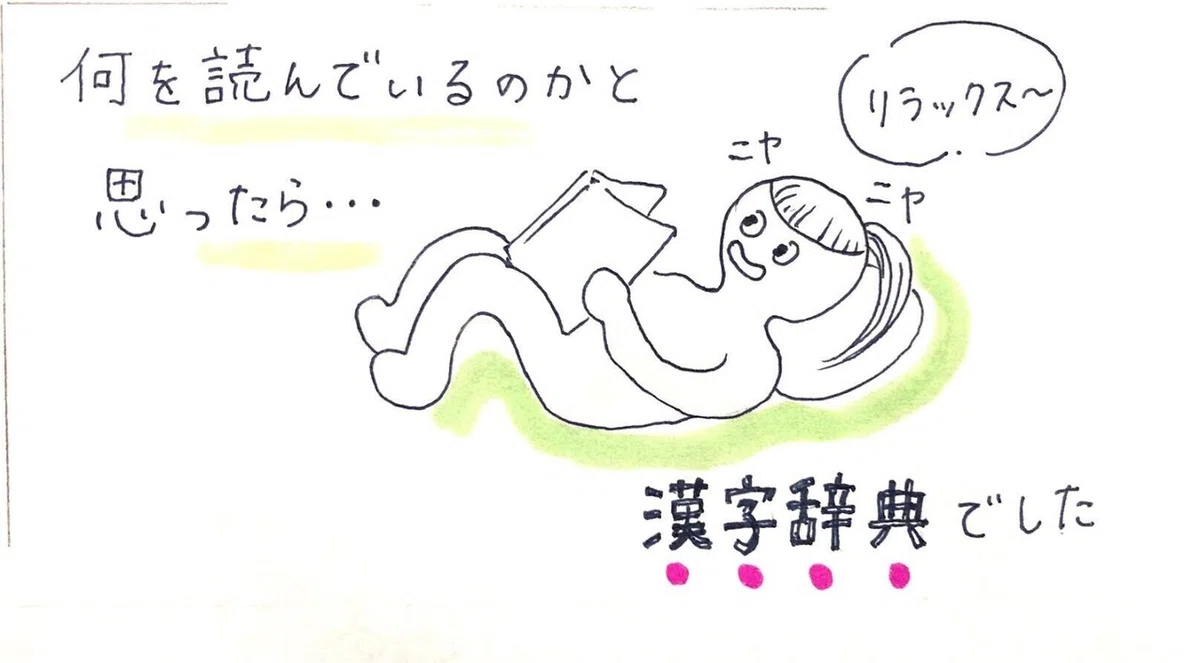 何を読んでいるのかと
思ったら・・・
リラックス〜
ニヤ
ニヤ
漢字辞典でした